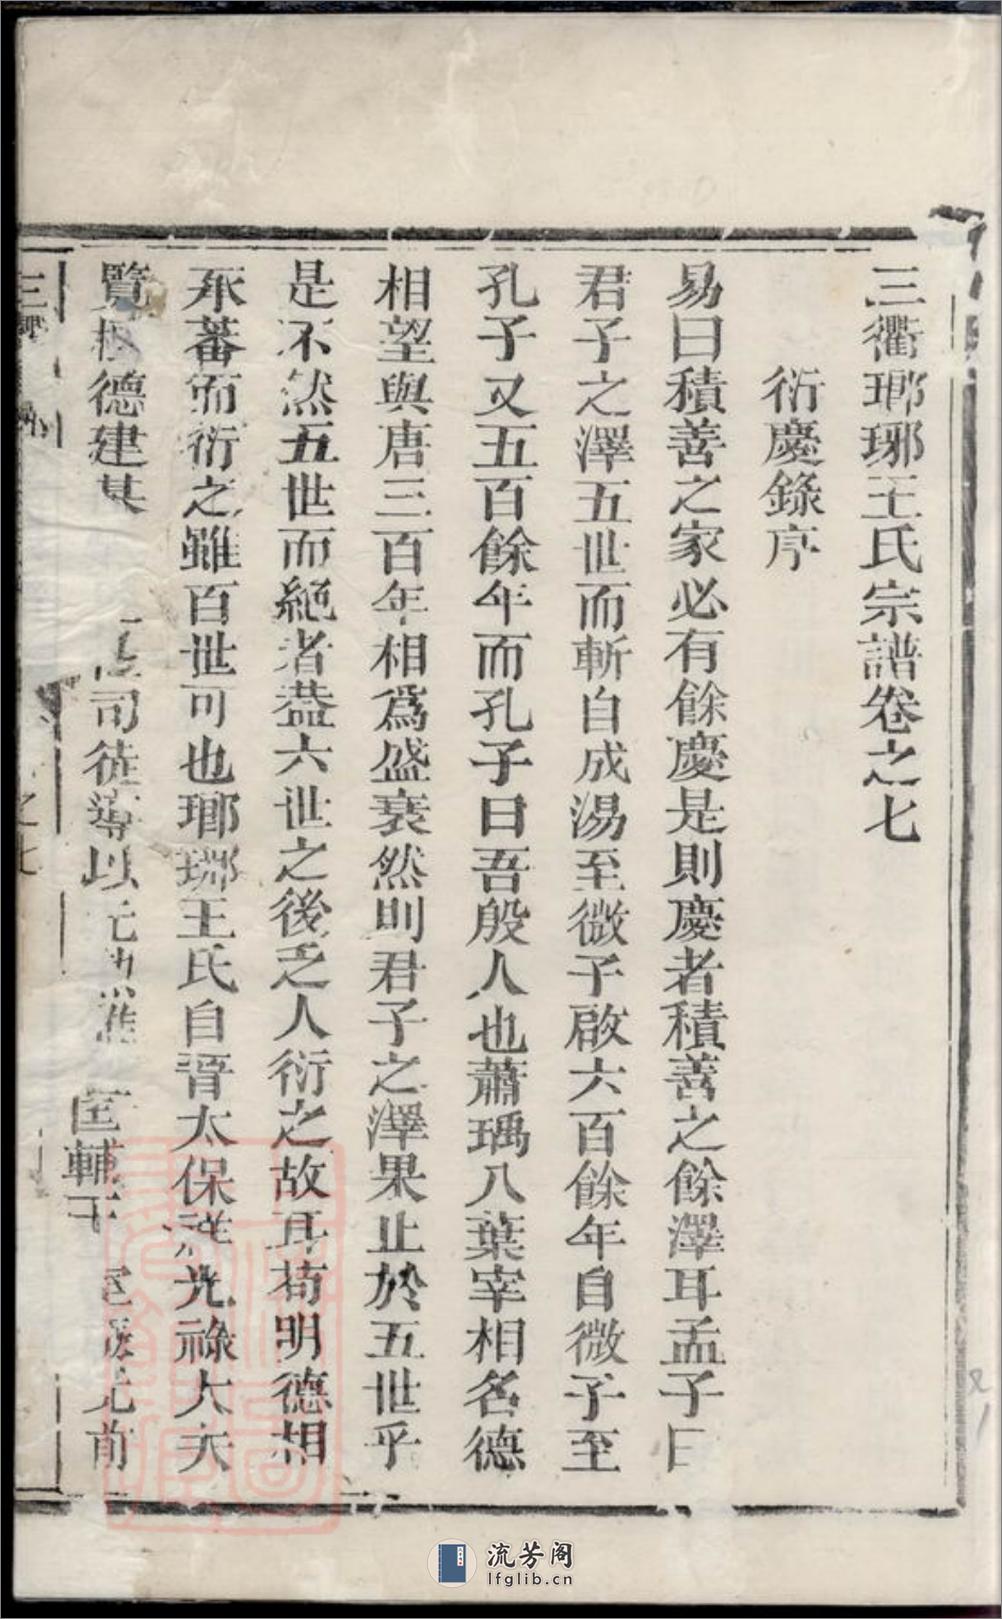 三衢瑯琊王氏宗譜卷之七
衍慶錄序
易曰積善之家必有餘慶是則慶者積善之餘澤耳孟子曰
君子之澤五世而斬自成湯至微子啟六百餘年自微子至
孔子又五百餘年而孔子曰吾殷人也蕭瑀八葉宰相名德
相望與唐三百年相為盛衰然則君子之澤果止於五世乎
是不然五世而絕者蓋六世之後乏人衍之故耳苟明德相
承蕃而衍之雖百世可也瑯琊王氏自晉太保祥光祿大夫
覽樹德建基 司徒導以 匡輔 室 光前
之七
流芳阁
lfglib.cn